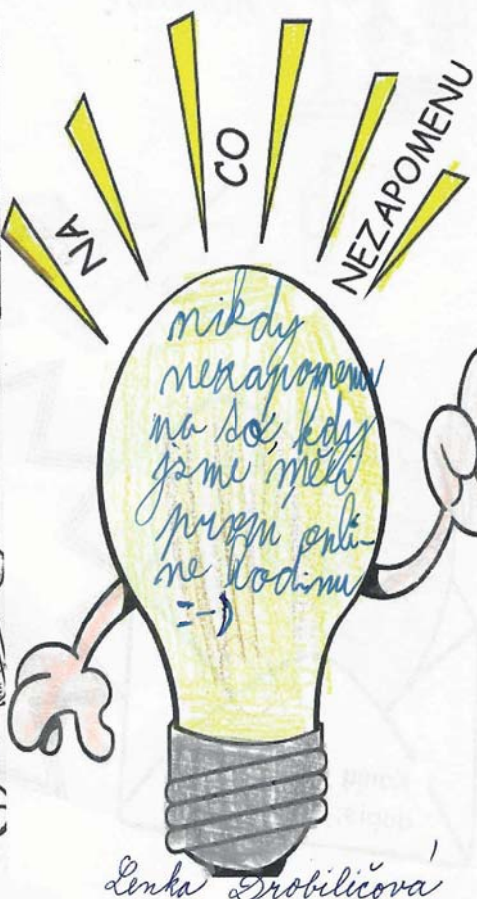 NA
CO
NEZAPOMENU
nikdy
nezapomenu
na to, kdy
jsme měli
první onli-
ne hodinu
=-)
Lenka Drobiličová